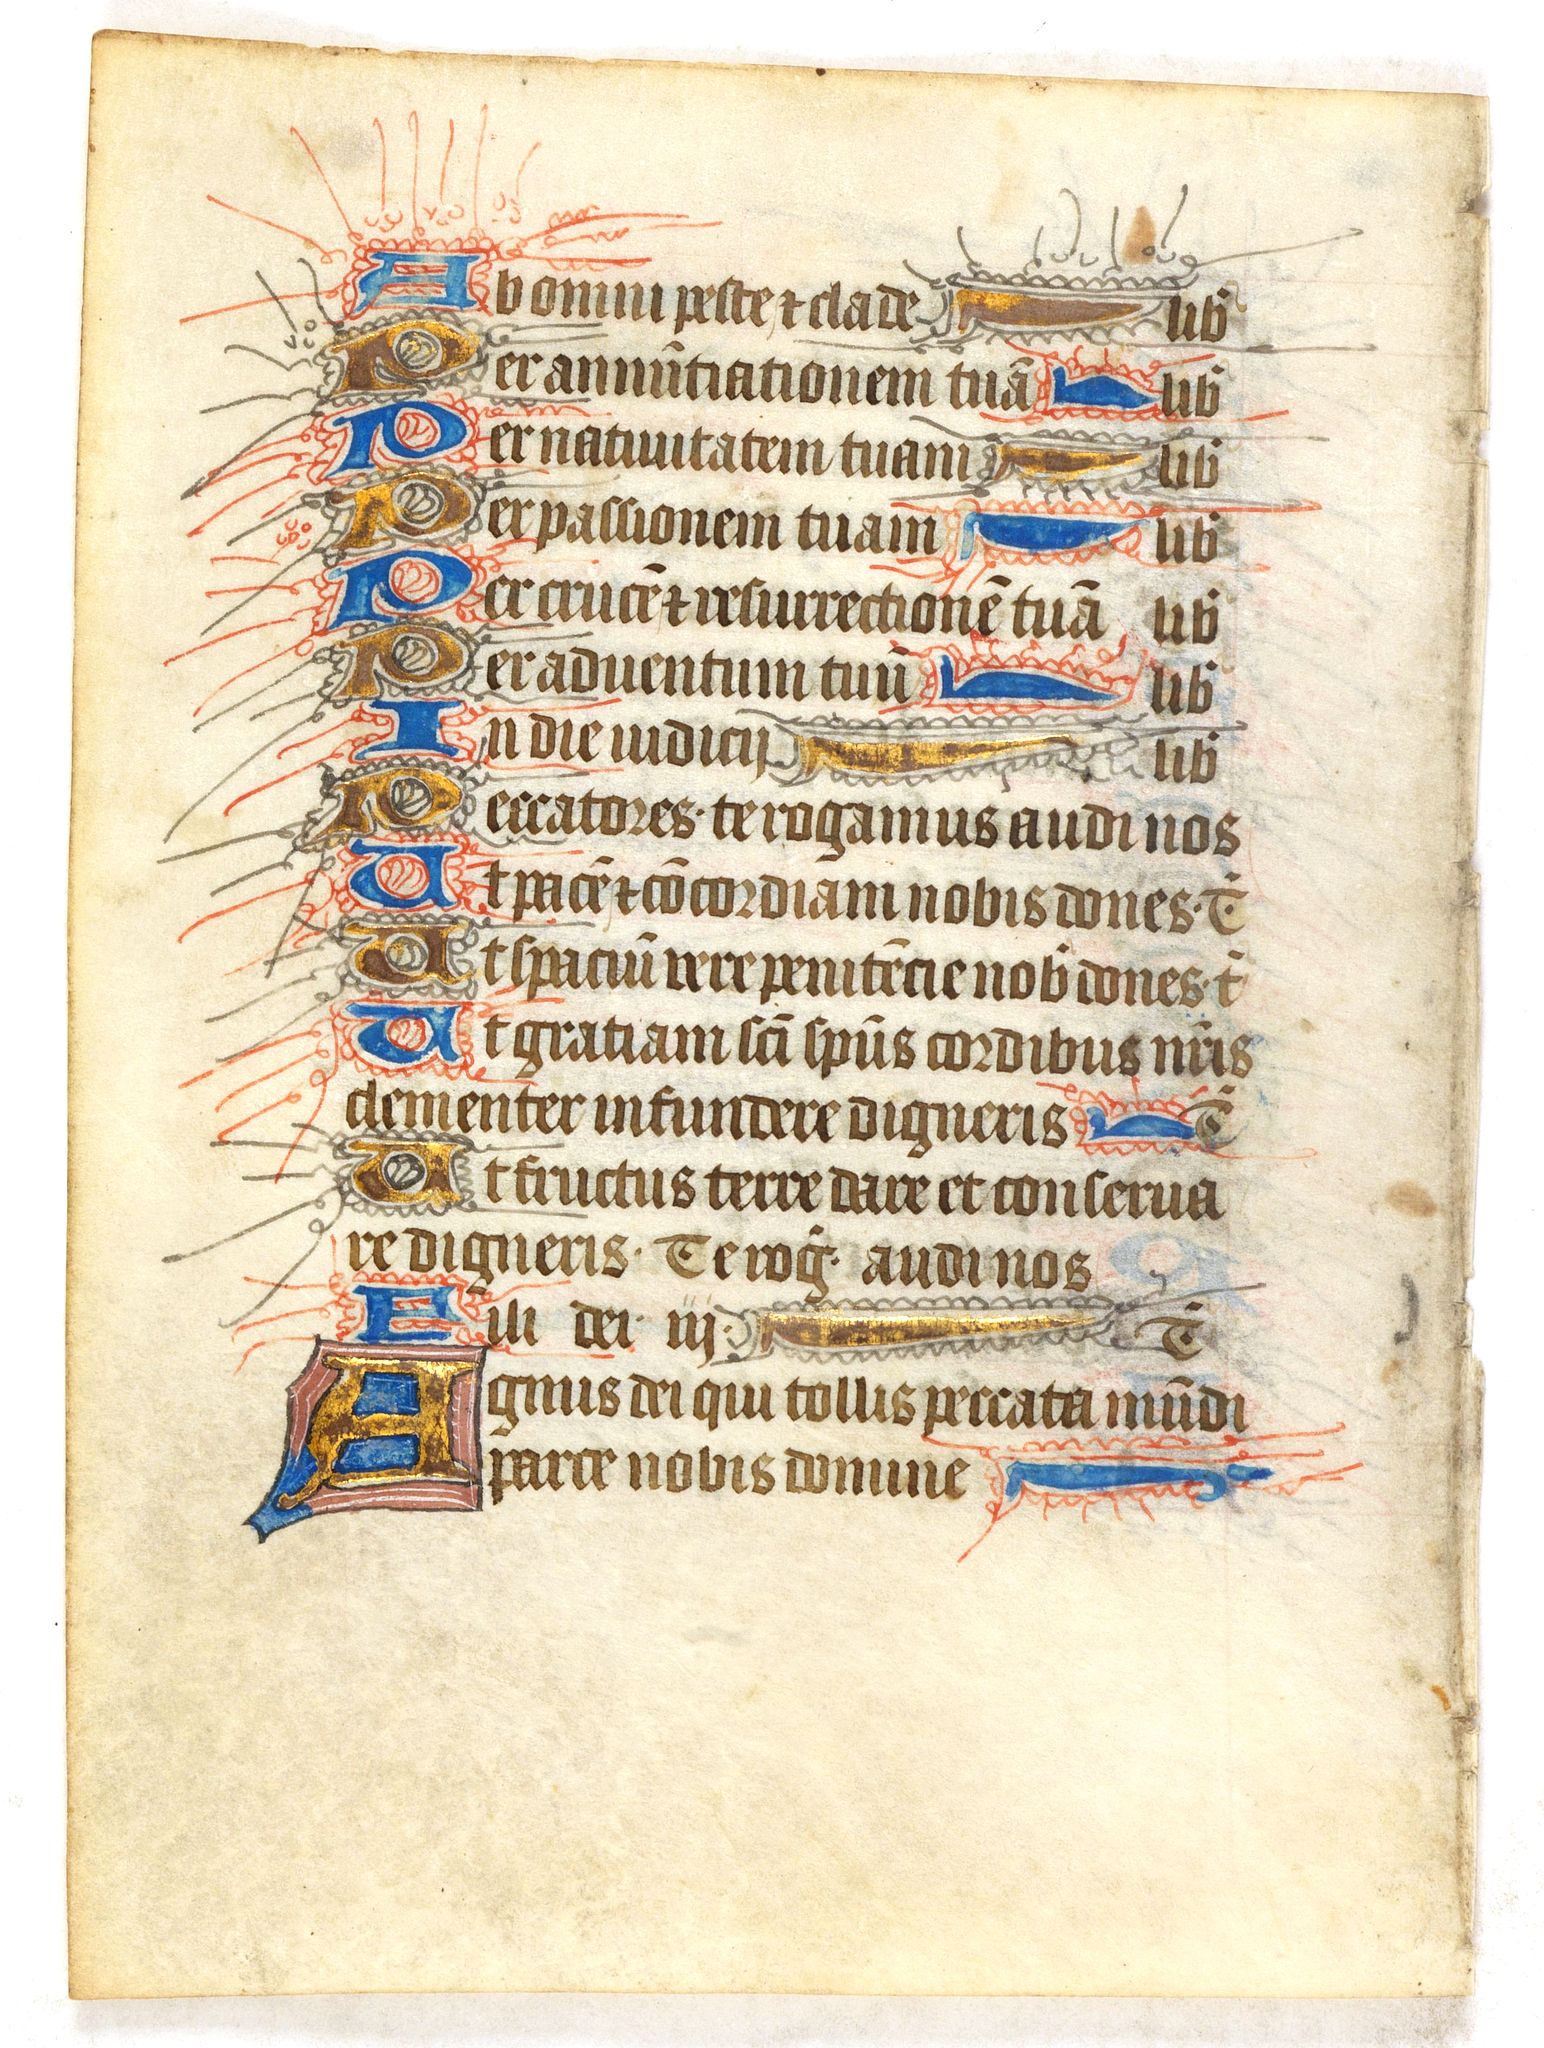 Ab omni peste ⁊ clade lib̄
Per annūtiationem tuā lib̄
Per natiuitatem tuam lib̄
Per passionem tuam lib̄
Per crucē ⁊ resurrectionē tuā lib̄
Per aduentum tuū lib̄
In die iudicij lib̄
Peccatores· te rogamus audi nos
Ut pacē ⁊ cōcordiam nobis dones· T̄
Ut spaciū vere penitēcie nob̄ dones· t̄
Ut gratiam sc̄i sp̄us cordibus nr̄is
clementer infundere digneris T̄
Ut fructus terre dare et conserua
re digneris· Te roḡ· audi nos
Fili dei· iij· T̄
Agnus dei qui tollis peccata mūdi
parce nobis domine